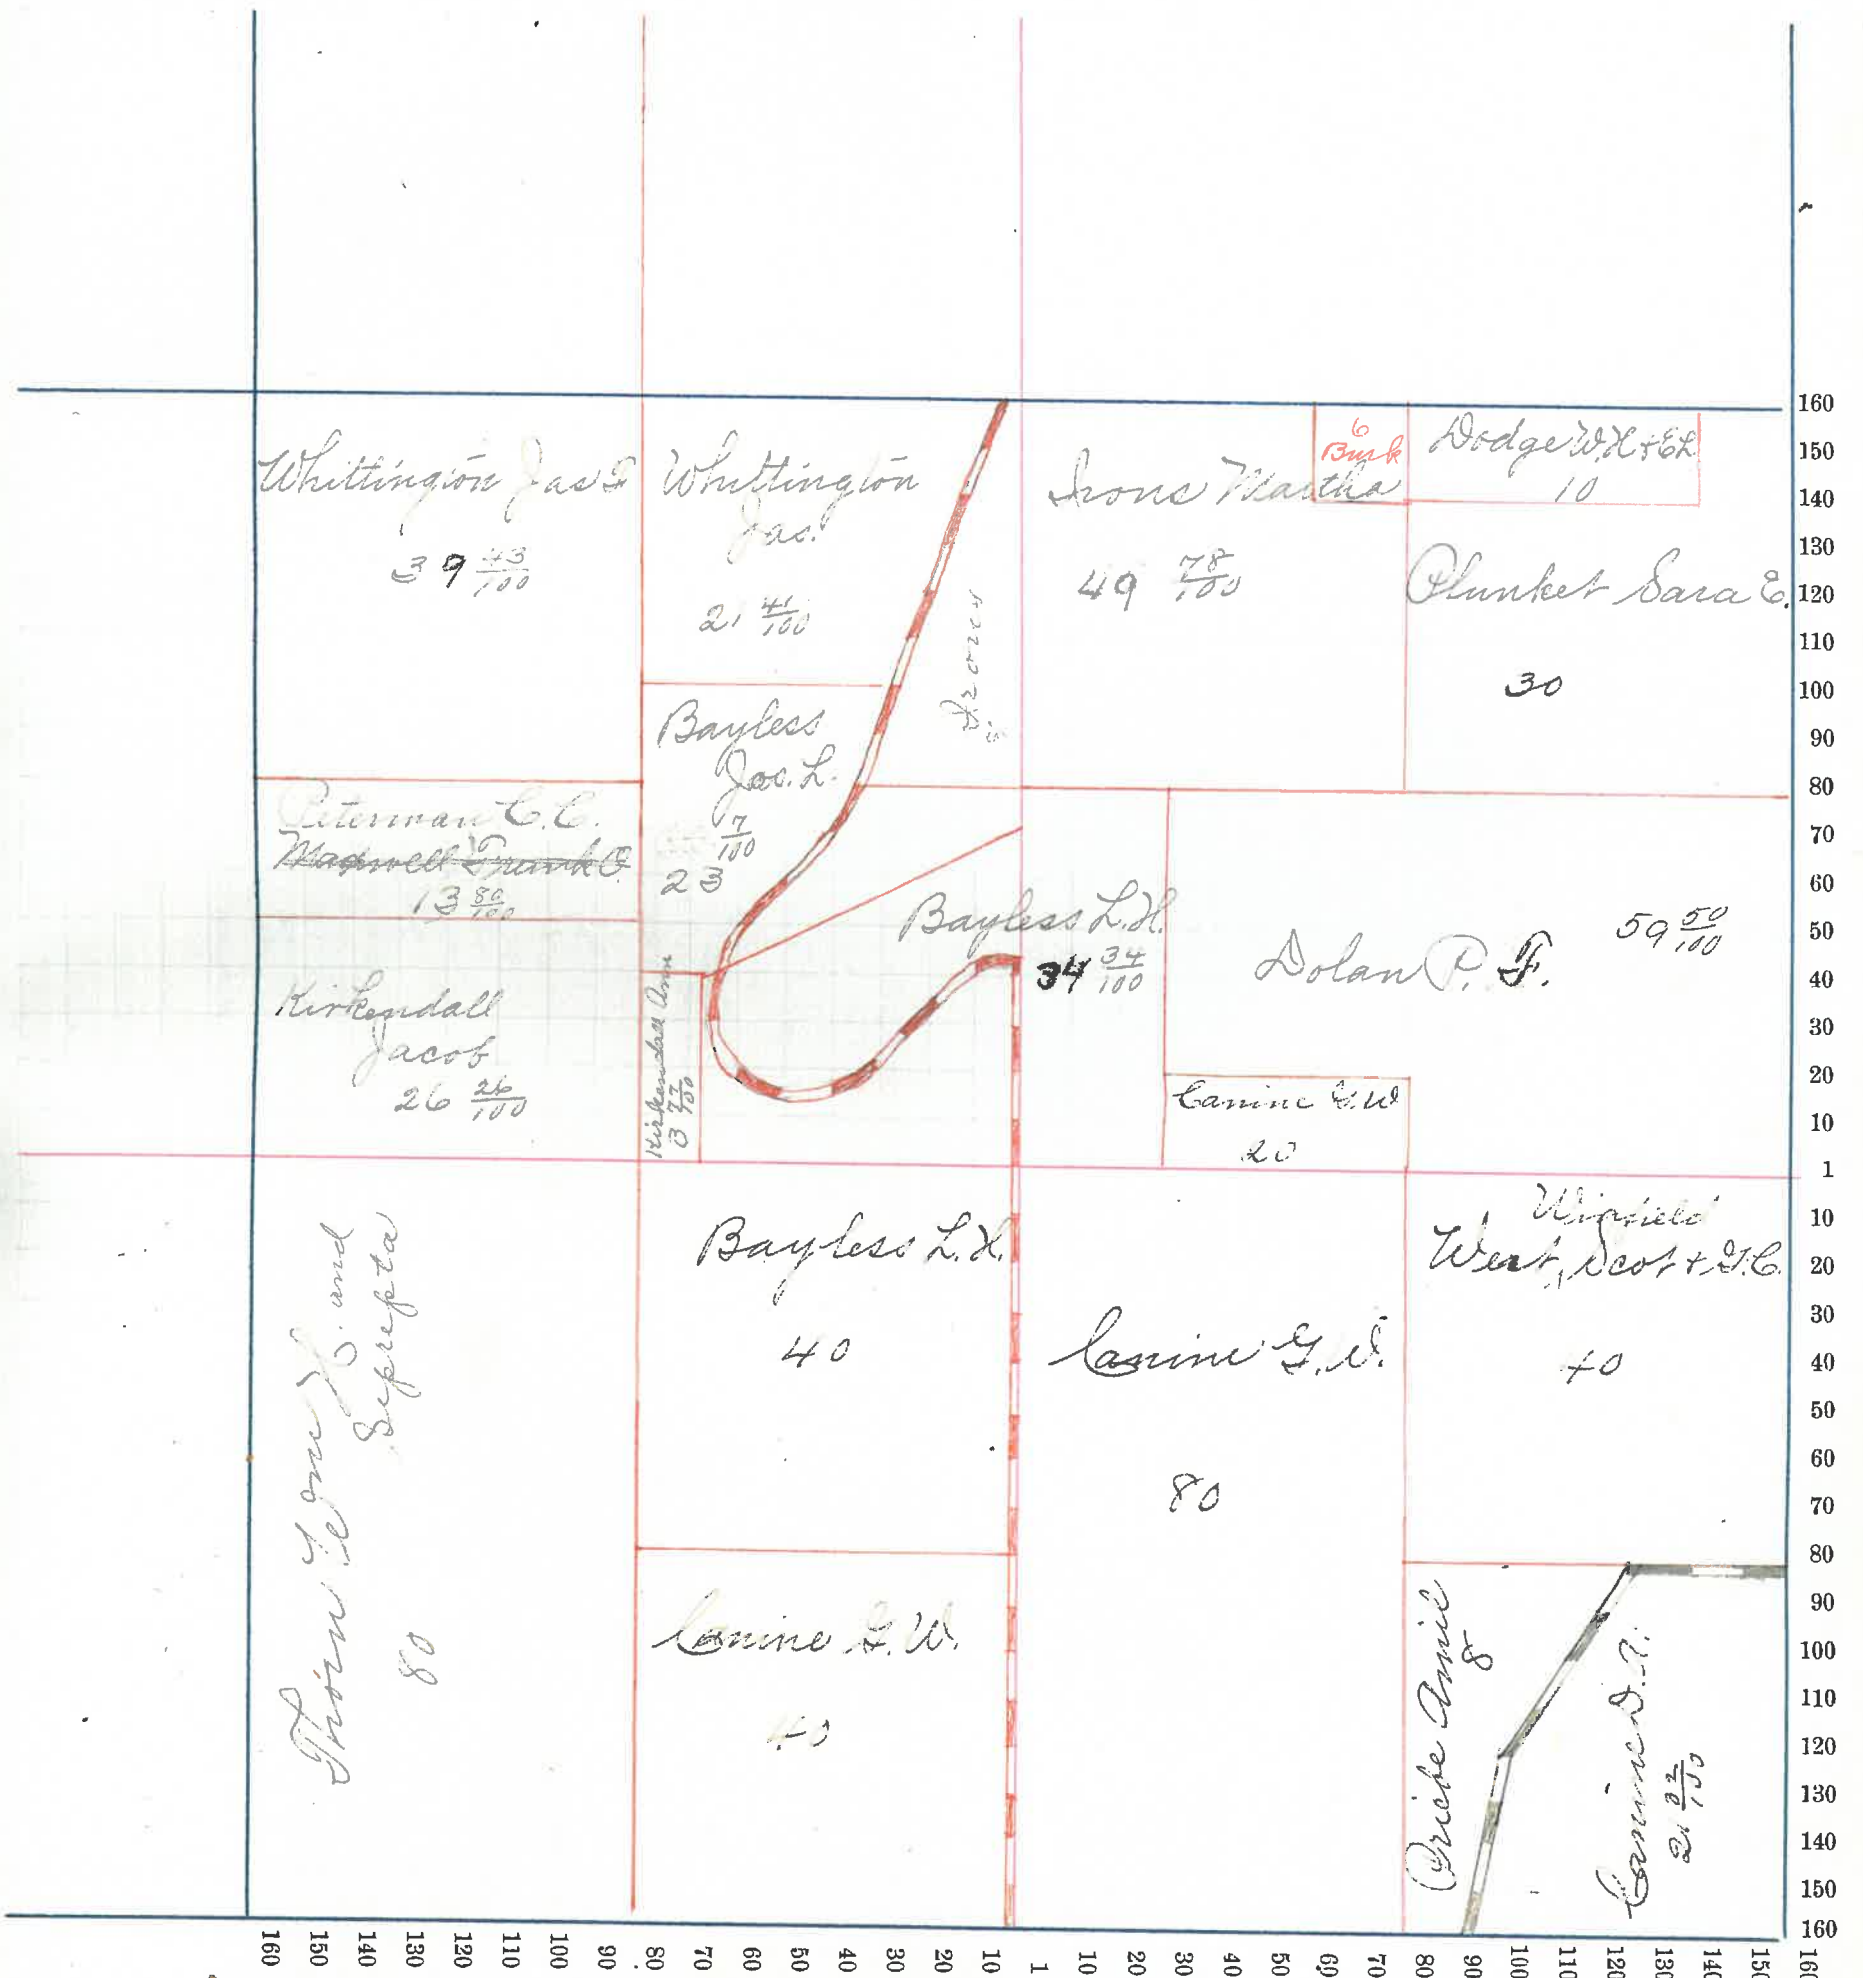 Whittington Jas
39 43/100
Whittington
Jas.
21 41/100
Irons
Irons Martha
49 78/100
6
Busk
Dodge W.H. + E L
10
Plunket Sara E.
30
Bayless
Jas. L.
17/100
23
Peterman C. C.
Maxwell Frank
13 80/100
Kirkendall
Jacob
26 26/100
Kirkendall Ann
3 77/100
Bayless L. H.
34 34/100
Dolan P. F.
59 50/100
Canine G. W
20
Thom
and
Serepta
80
Bayless L. H.
40
Canine G. W.
80
Winfield
West, Scot + G. C.
40
Canine G. W.
40
Pricbe Amil
8
Canine D. T.
21 02/100
160
150
140
130
120
110
100
90
80
70
60
50
40
30
20
10
1
10
20
30
40
50
60
70
80
90
100
110
120
130
140
150
160
160 150 140 130 120 110 100 90 80 70 60 50 40 30 20 10 1 10 20 30 40 50 60 70 80 90 100 110 120 130 140 150 160